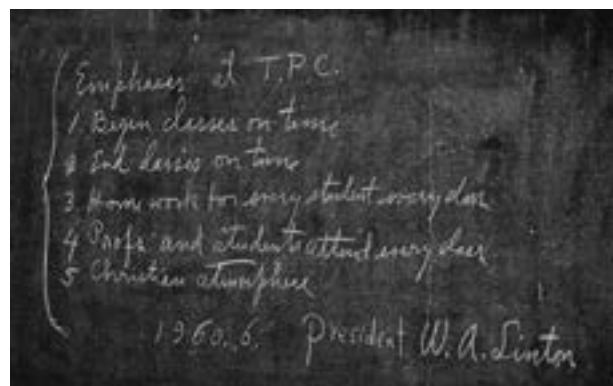 Emphases at T.P.C.
1. Begin classes on time
2 End classes on time
3. Home work for every student every class
4 Profs' and students attend every class.
5 Christian atmosphere
1960. 6. President W. A. Linton